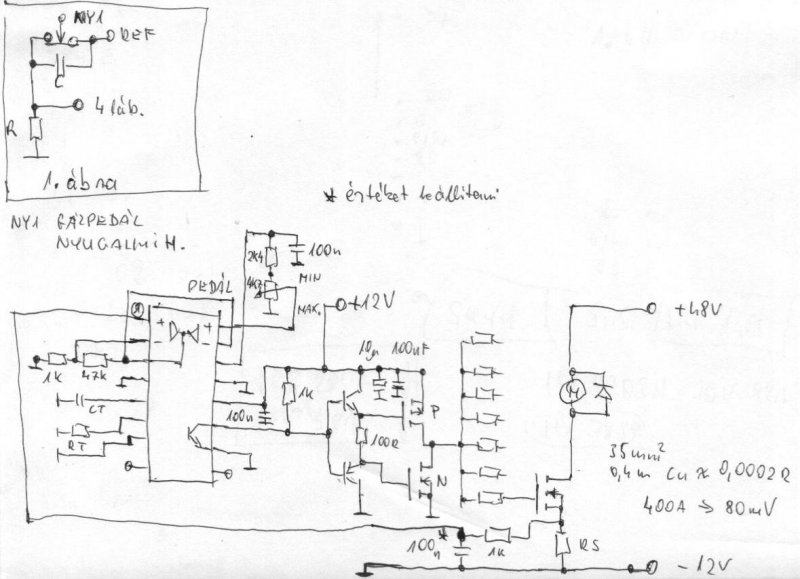 NY1
REF
C
4 láb.
R
1. ábra
* értéket beállítani
NY1 GÁZPEDÁL
NYUGALMI H.
2K4
100n
4K7
MIN
MAX.
PEDÁL
+12V
+48V
1K
47K
CT
RT
100n
1K
10µ
100nF
P
100Ω
N
M
35mm²
0,4m Cu ≈ 0,0002Ω
400A → 80mV
*
100n
1K
RS
-12V